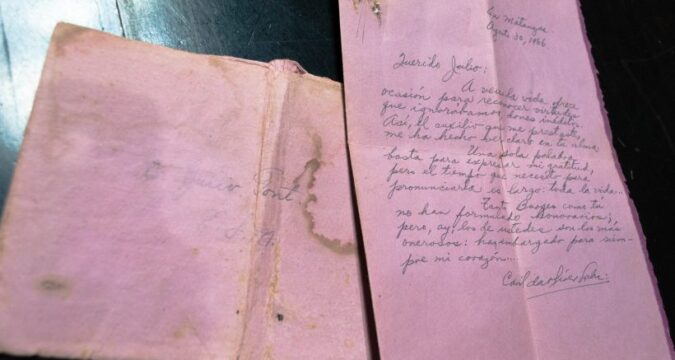 Font
En Matanzas
Agosto 30, 1966
Querido Julio:
A veces la vida ofrece
ocasión para reconocer virtudes
que ignorábamos, dones inéditos.
Así, el auxilio que me prestaste,
me ha hecho ver claro en tu alma
Una sola palabra
basta para expresar mi gratitud,
pero el tiempo que necesito para
pronunciarla es largo: toda la vida...
Tant Borges como tú
no han formulado honorarios;
pero, ay, los de ustedes son los más
onerosos: han embargado para siem-
pre mi corazón...